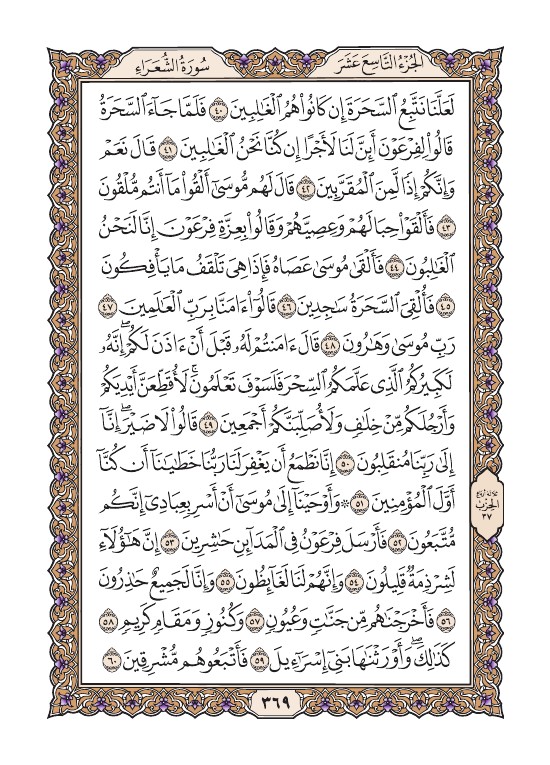 الجُزْءُ التَّاسِعَ عَشَرَ
سُورَةُ الشُّعَرَاءِ
لَعَلَّنَا نَتَّبِعُ ٱلسَّحَرَةَ إِن كَانُوا۟ هُمُ ٱلْغَـٰلِبِينَ ٤٠ فَلَمَّا جَآءَ ٱلسَّحَرَةُ
قَالُوا۟ لِفِرْعَوْنَ أَئِنَّ لَنَا لَأَجْرًا إِن كُنَّا نَحْنُ ٱلْغَـٰلِبِينَ ٤١ قَالَ نَعَمْ
وَإِنَّكُمْ إِذًا لَّمِنَ ٱلْمُقَرَّبِينَ ٤٢ قَالَ لَهُم مُّوسَىٰٓ أَلْقُوا۟ مَآ أَنتُم مُّلْقُونَ
٤٣ فَأَلْقَوْا۟ حِبَالَهُمْ وَعِصِيَّهُمْ وَقَالُوا۟ بِعِزَّةِ فِرْعَوْنَ إِنَّا لَنَحْنُ
ٱلْغَـٰلِبُونَ ٤٤ فَأَلْقَىٰ مُوسَىٰ عَصَاهُ فَإِذَا هِىَ تَلْقَفُ مَا يَأْفِكُونَ
٤٥ فَأُلْقِىَ ٱلسَّحَرَةُ سَـٰجِدِينَ ٤٦ قَالُوٓا۟ ءَامَنَّا بِرَبِّ ٱلْعَـٰلَمِينَ ٤٧
رَبِّ مُوسَىٰ وَهَـٰرُونَ ٤٨ قَالَ ءَامَنتُمْ لَهُۥ قَبْلَ أَنْ ءَاذَنَ لَكُمْ ۖ إِنَّهُۥ
لَكَبِيرُكُمُ ٱلَّذِى عَلَّمَكُمُ ٱلسِّحْرَ فَلَسَوْفَ تَعْلَمُونَ ۚ لَأُقَطِّعَنَّ أَيْدِيَكُمْ
وَأَرْجُلَكُم مِّنْ خِلَـٰفٍ وَلَأُصَلِّبَنَّكُمْ أَجْمَعِينَ ٤٩ قَالُوا۟ لَا ضَيْرَ ۖ إِنَّآ
إِلَىٰ رَبِّنَا مُنقَلِبُونَ ٥٠ إِنَّا نَطْمَعُ أَن يَغْفِرَ لَنَا رَبُّنَا خَطَـٰيَـٰنَآ أَن كُنَّآ
أَوَّلَ ٱلْمُؤْمِنِينَ ٥١ ۞ وَأَوْحَيْنَآ إِلَىٰ مُوسَىٰٓ أَنْ أَسْرِ بِعِبَادِىٓ إِنَّكُم
مُّتَّبَعُونَ ٥٢ فَأَرْسَلَ فِرْعَوْنُ فِى ٱلْمَدَآئِنِ حَـٰشِرِينَ ٥٣ إِنَّ هَـٰٓؤُلَآءِ
لَشِرْذِمَةٌ قَلِيلُونَ ٥٤ وَإِنَّهُمْ لَنَا لَغَآئِظُونَ ٥٥ وَإِنَّا لَجَمِيعٌ حَـٰذِرُونَ
٥٦ فَأَخْرَجْنَـٰهُم مِّن جَنَّـٰتٍ وَعُيُونٍ ٥٧ وَكُنُوزٍ وَمَقَامٍ كَرِيمٍ ٥٨
كَذَٰلِكَ ۖ وَأَوْرَثْنَـٰهَا بَنِىٓ إِسْرَٰٓءِيلَ ٥٩ فَأَتْبَعُوهُم مُّشْرِقِينَ ٦٠
الحِزْب
٣٧
٣٦٩